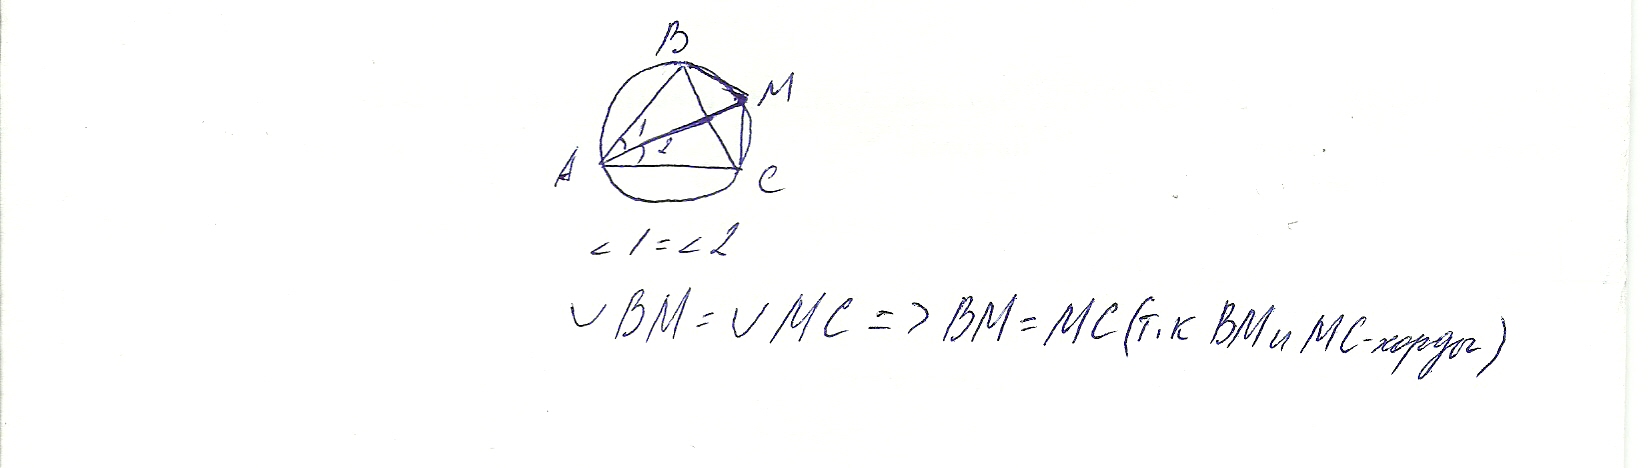 B
M
1
2
A
C
∠1=∠2
∪BM=∪MC=>BM=MC(т.к BM и MC-хорды)